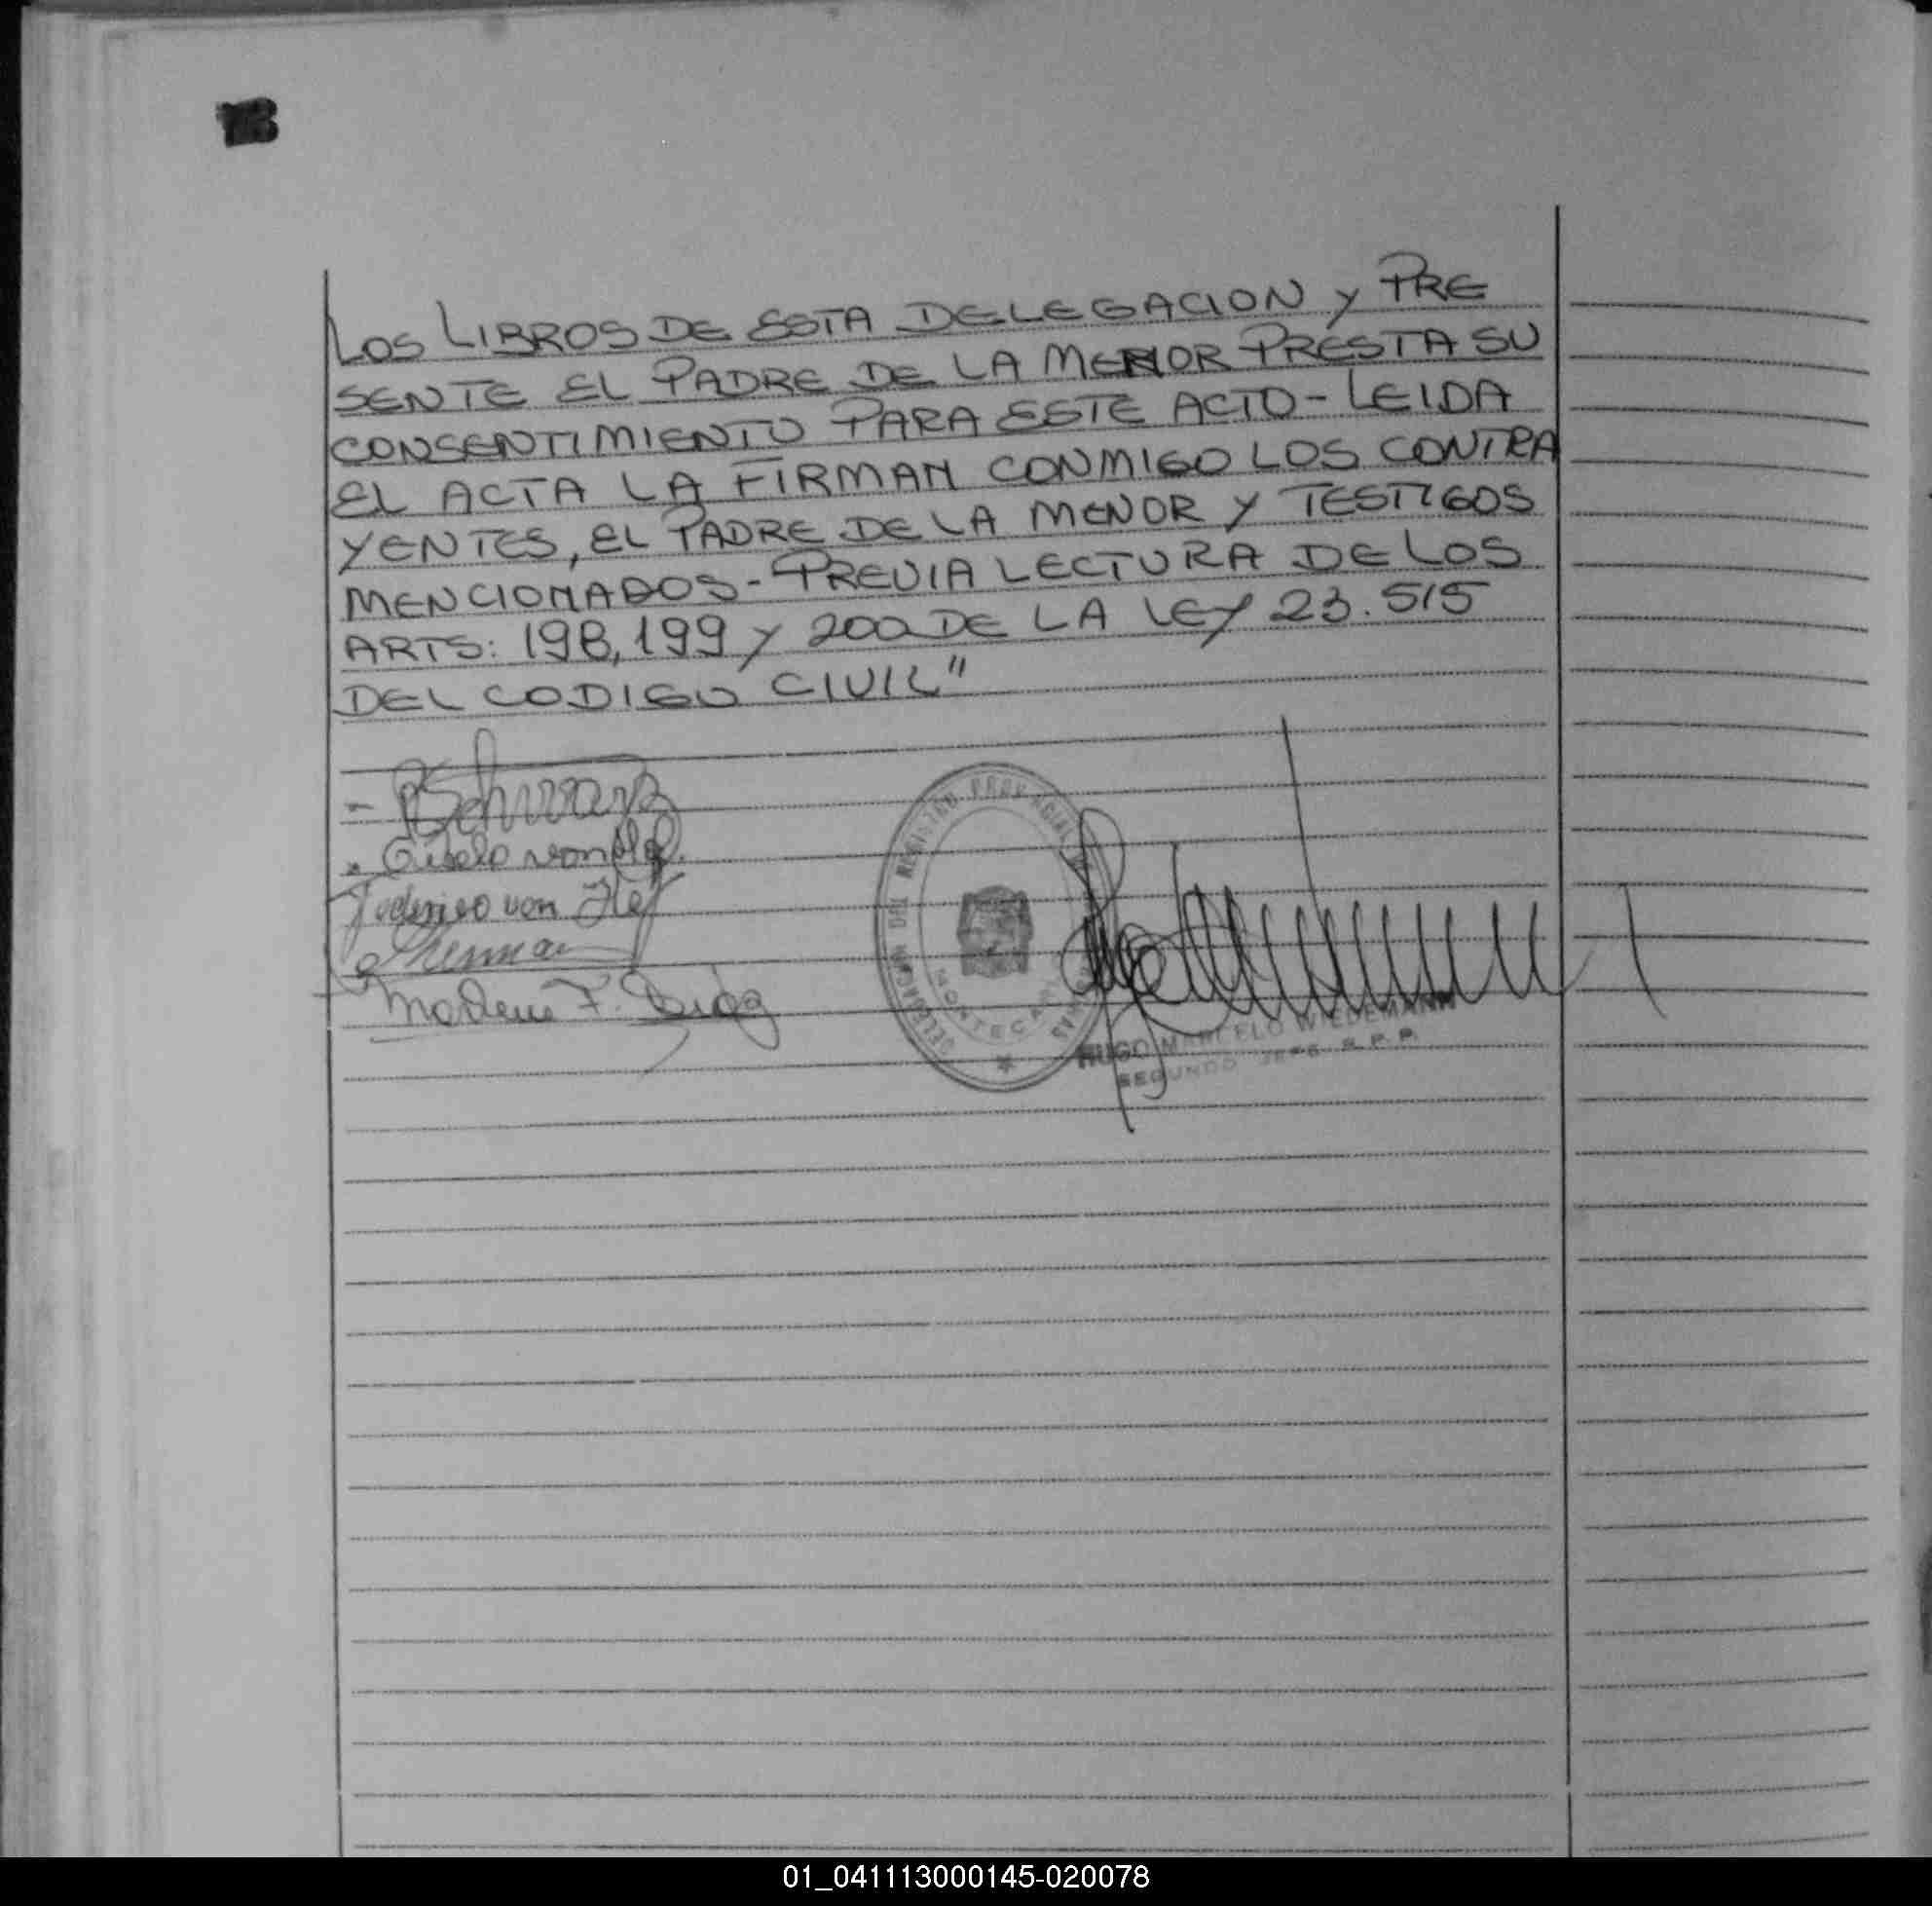 LOS LIBROS DE ESTA DELEGACION Y PRE
SENTE EL PADRE DE LA MENOR PRESTA SU
CONSENTIMIENTO PARA ESTE ACTO - LEIDA
EL ACTA LA FIRMAN CONMIGO LOS CONTRA
YENTES, EL PADRE DE LA MENOR Y TESTIGOS
MENCIONADOS - PREVIA LECTURA DE LOS
ARTS: 198, 199 Y 200 DE LA LEY 23.515
DEL CODIGO CIVIL"
Schwarz
von
Federico von
Marlene F. Diaz
DELEGACION DEL REGISTRO PROVINCIAL
MONTECARLO
HUGO MARCELO WIEDEMANN
SEGUNDO JEFE R.P.P.
01_041113000145-020078